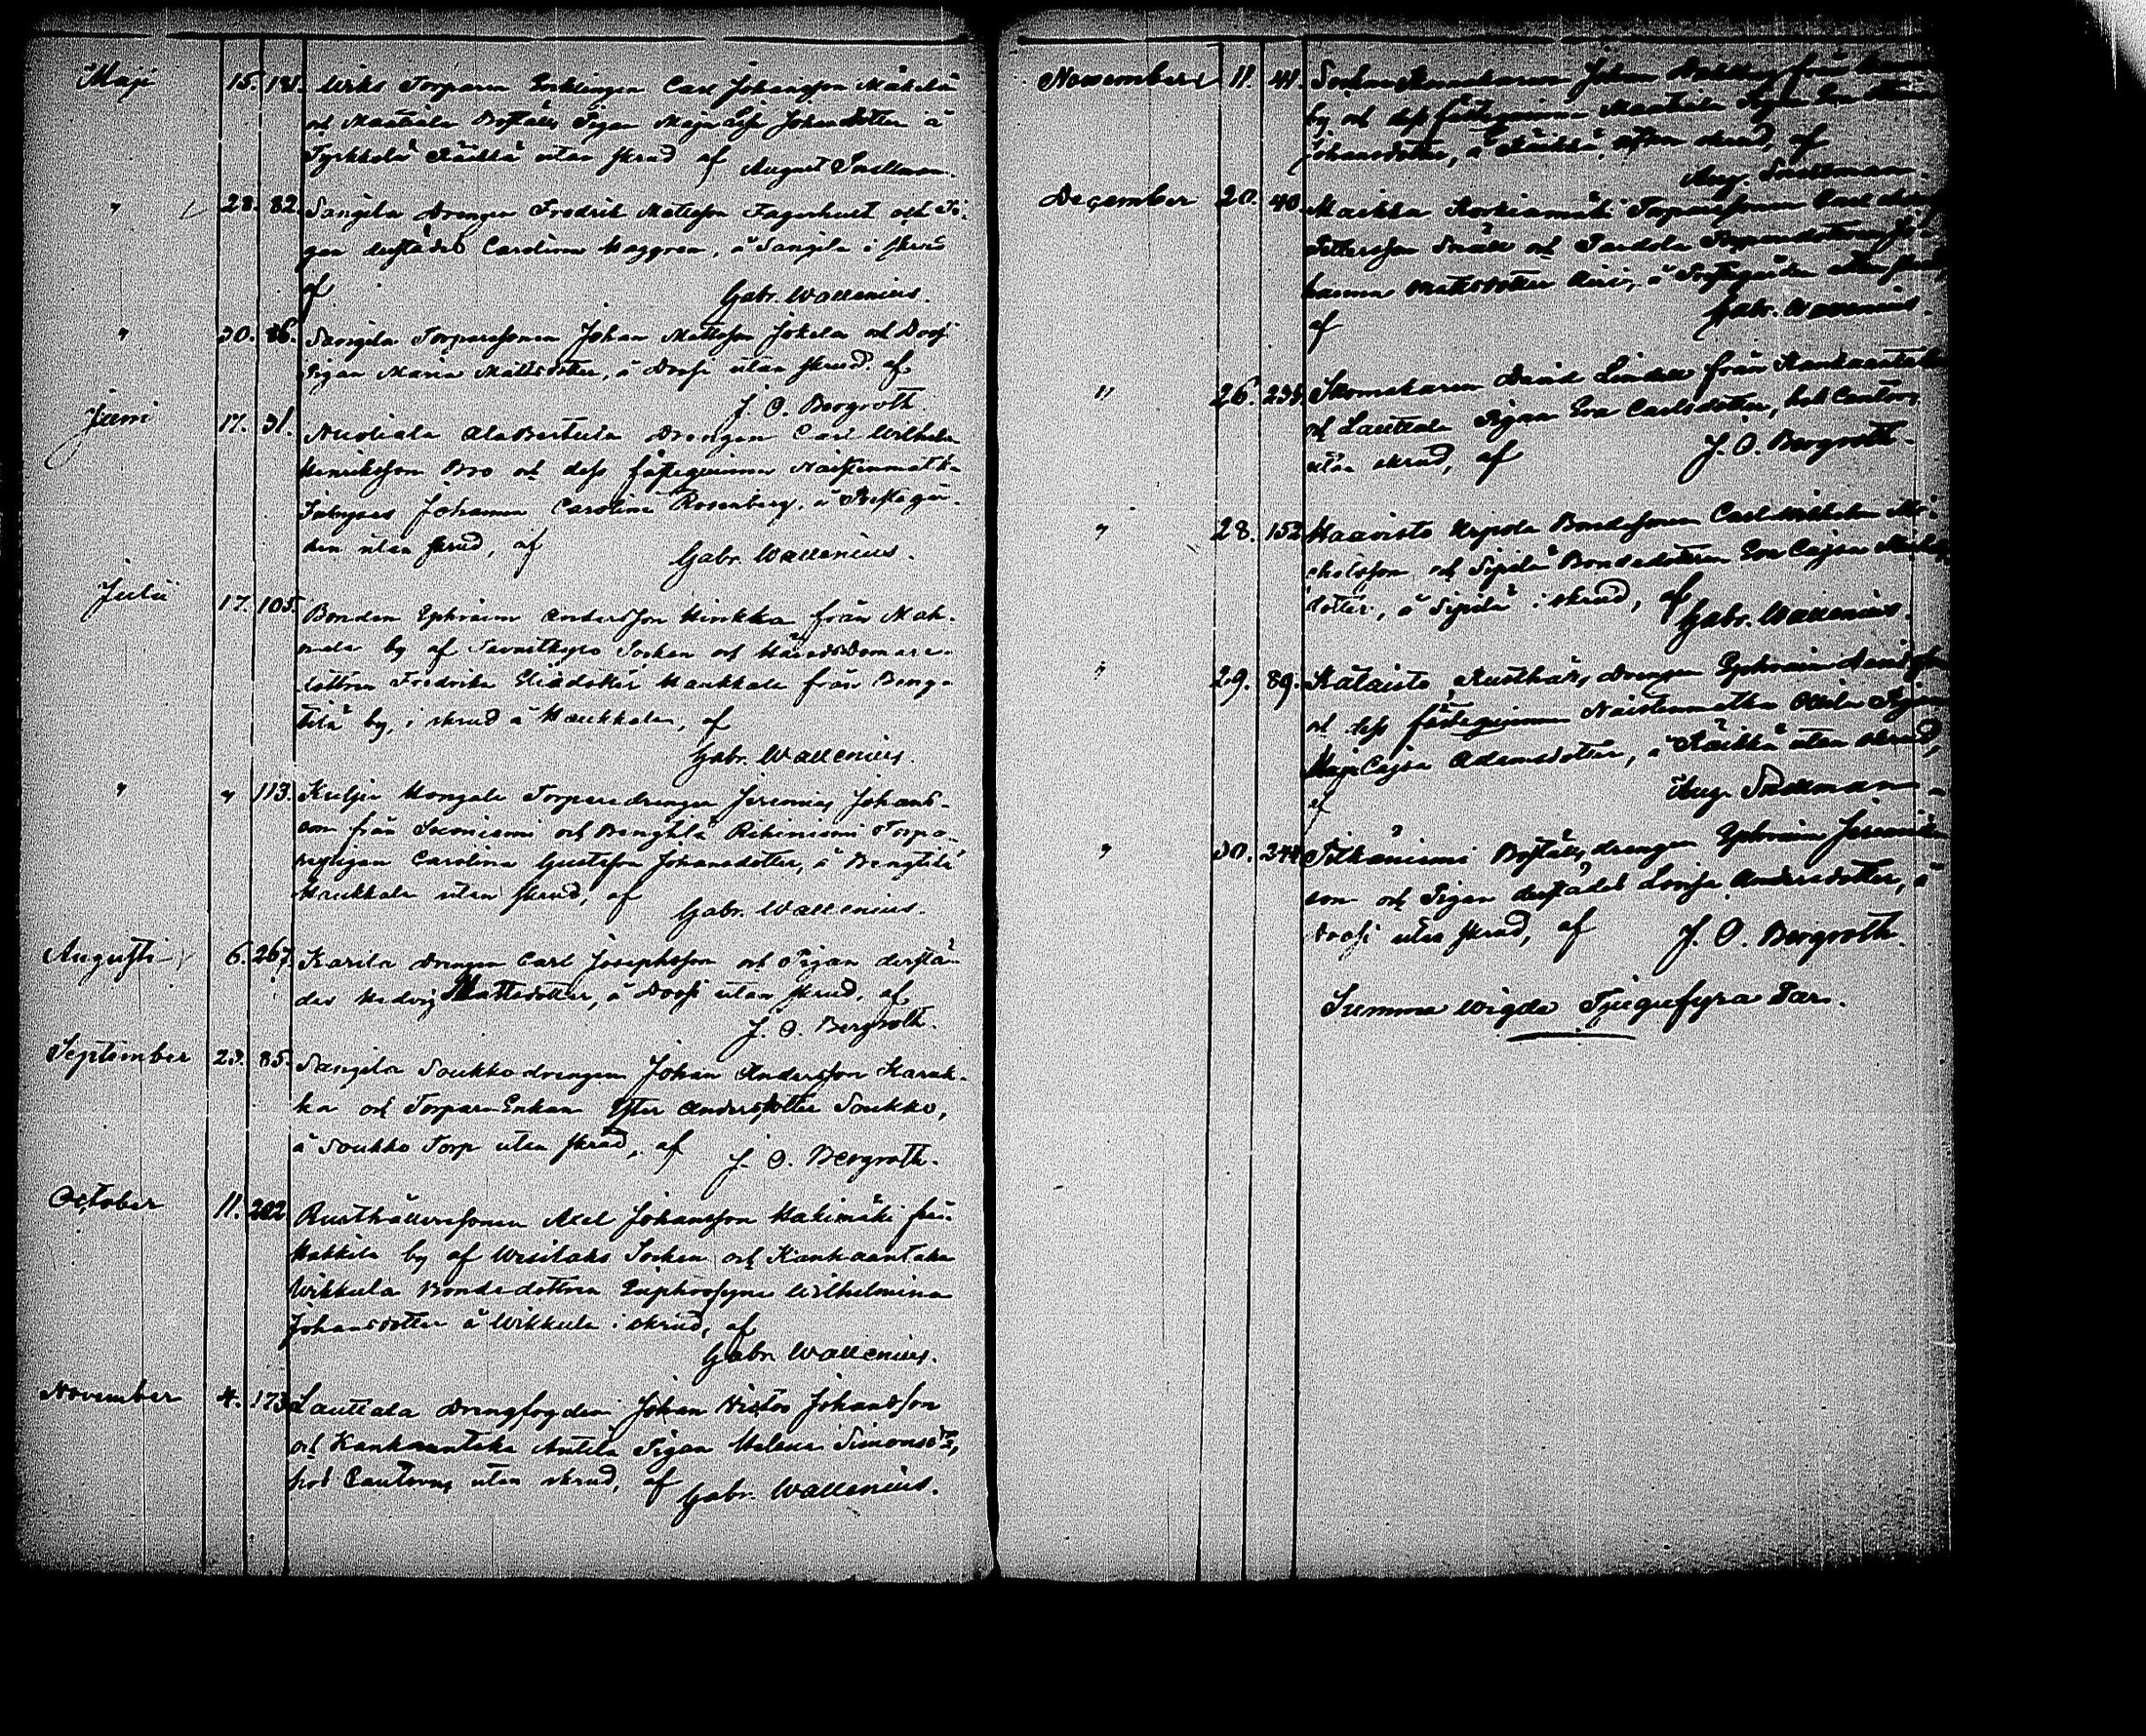 Maji 15. 181. Wiks Torparen Enklingen Carl Johansson Mäkelä
och Mattiala Boställs Pigan Maja Johansdotter å
Tyrkkölä Räikkä utan skrud af August Snellman.
" 28. 82. Sangila Drengen Fredrik Mattsson Fagerlund och Pi-
gan derstädes Carolina Haggren, å Sangila i skrud
af Gabr. Wallenius.
" 30. 86. Sangila Torparesonen Johan Mattsson Jokela och
Pigan Maria Mattsdotter, å utan skrud af
J. O. Bergroth
Juni 17. 31. AlaBertula Drengen Carl Wilhelm
Henriksson Bro och dess fästeqvinna Naistenmatka
Inhyses Johanna Carolina Rosenberg, å Prestegår-
den utan skrud, af Gabr. Wallenius.
Julii 17. 105. Bonden Ephraim Andersson Hinkka från Mah-
nala by af Tavastkyro Socken och HäradsDomare-
dottren Fredrika Eliædotter Haukkala från Beng-
tilä by, i skrud å Haukkala, af
Gabr. Wallenius.
" " 113. Kulju Mongala Torparedrengen Jeremias Johans-
son från Suoniemi och Bengtilä Rikiniemi Torpa-
repigan Carolina Gustafva Johansdotter, å Bengtilä
Haukkala utan skrud, af
Gabr. Wallenius.
Augusti 6. 267 Karila Drengen Carl Josephsson och Pigan derstä-
des Hedvig Mattsdotter, å utan skrud, af
J. O. Bergroth.
September 23. 85. Sangila Soukko drengen Johan Andersson Karak-
ka och Torpare Enkan Ester Andersdotter Soukko,
å Soukko Torp utan skrud, af J. O. Bergroth.
October 11. 202 Rusthållaresonen Axel Johansson Hakimäki från
Hakkila by af Wesilaks Socken och Kankaantaka
Wikkula Bondedottren Euphrosyne Wilhelmina
Johansdotter å Wikkula i skrud, af
Gabr. Wallenius.
November 4. 173 Lauttala Drengfogden Johan Wictor Johansson
och Kankaantaka Anttila Pigan Helena Simonsdtr,
hos Cantorns utan skrud, af Gabr. Wallenius.
November 11. 41. Socken Skomakaren Johan från
by och dess fästeqvinna Mantila Pigan Eva Stina
Johansdotter, å Räikkä, utan skrud, af
Aug. Snellman.
December 20. 40. Maikkla Korkiamäki Torparesonen Carl
Pettersson och Pardola Torparedottren Jo-
hanna Mattsdotter å Prestegården utan skrud
af Gabr. Wallenius.
" 26. 235 Skomakaren David Lindell från Kankaantaka
och Lauttala Pigan Eva Carlsdotter, hos Cantorns
utan skrud, af J. O. Bergroth.
" 28. 152 Haavisto Bondesonen Carl Wilhelm Mi-
chelsson och Sipilä Bondedottren Eva Cajsa
dotter, å Sipilä i skrud, af
Gabr. Wallenius.
" 29. 89. Kalaisto Rusthålls drengen Ephraim
och dess fästeqvinna Naistenmatka Ollila Pigan
Maja Cajsa Adamsdotter, å Räikkä utan skrud,
af Aug. Snellman
" 30. 244 Pitkäniemi Boställs drengen Ephraim Jeremias-
son och Pigan derstädes Lovisa Andersdotter, å
utan skrud, af J. O. Bergroth.
Summa wigda Tjugufyra Par.